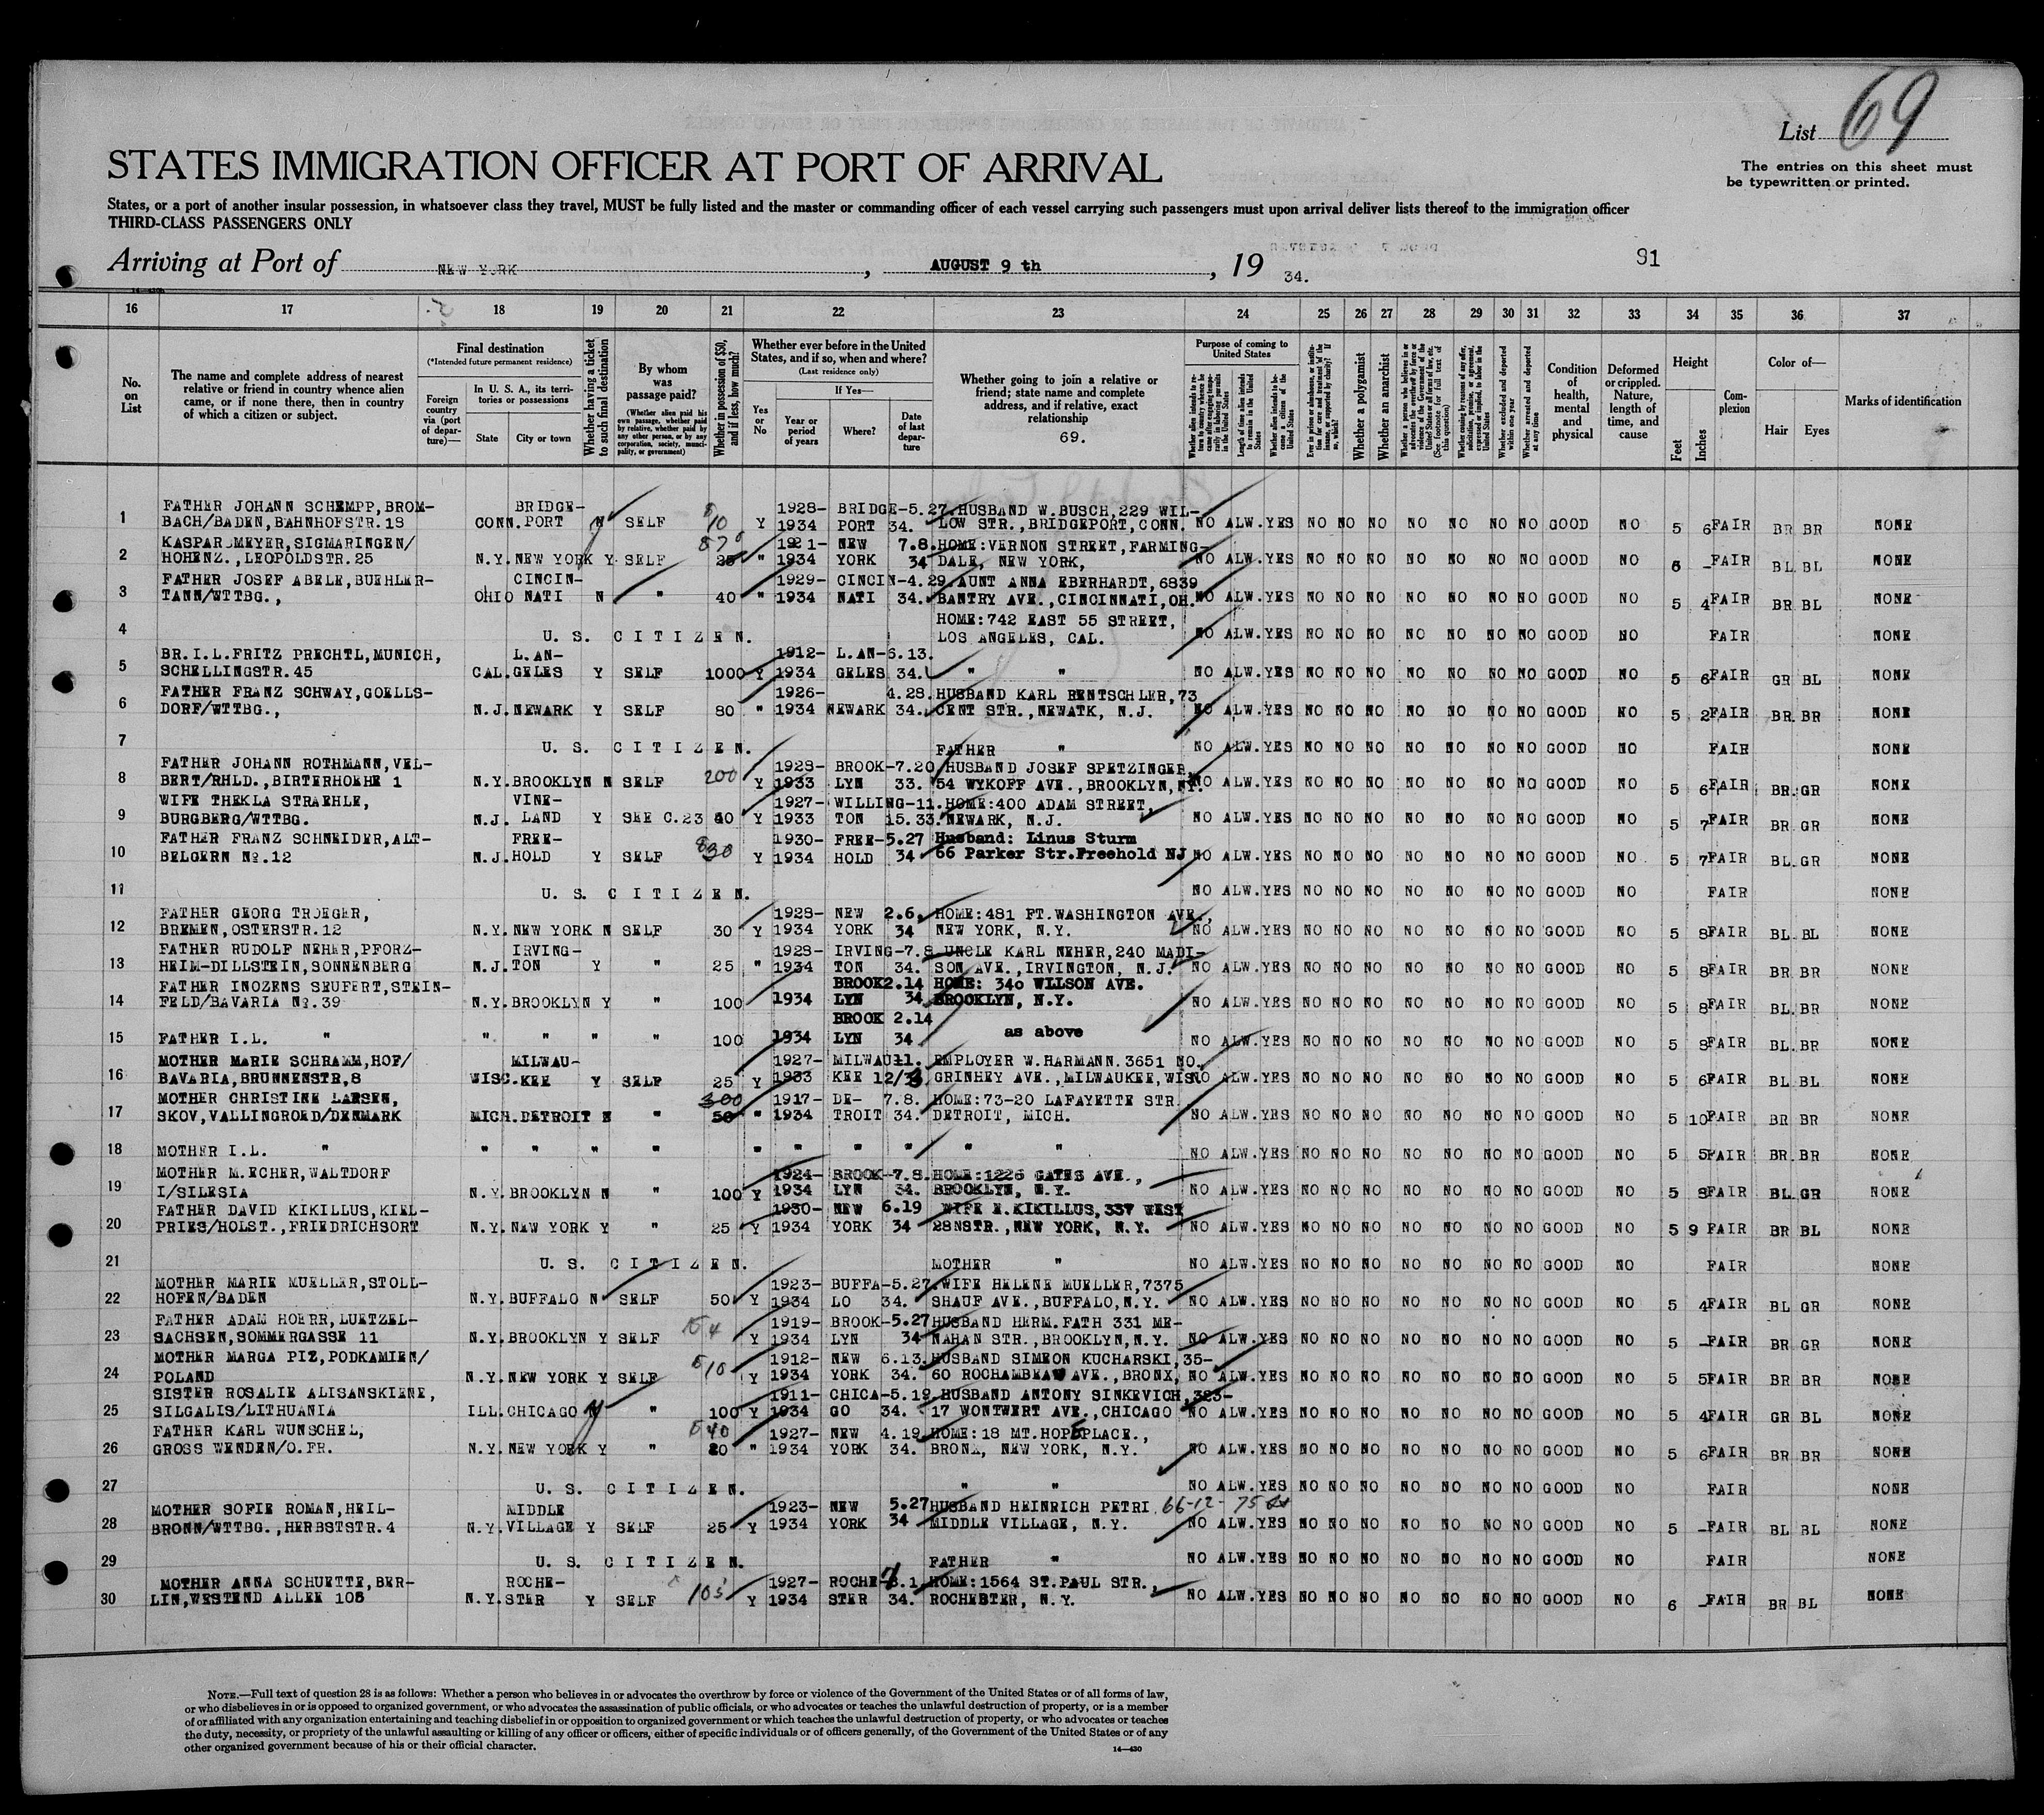 List 69
The entries on this sheet must
be typewritten or printed.
STATES IMMIGRATION OFFICER AT PORT OF ARRIVAL
States, or a port of another insular possession, in whatsoever class they travel, MUST be fully listed and the master or commanding officer of each vessel carrying such passengers must upon arrival deliver lists thereof to the immigration officer
THIRD-CLASS PASSENGERS ONLY
Arriving at Port of NEW YORK, AUGUST 9 th, 19 34.
91
16 17 18 19 20 21 22 23 24 25 26 27 28 29 30 31 32 33 34 35 36 37
No. on List
The name and complete address of nearest relative or friend in country whence alien came, or if none there, then in country of which a citizen or subject.
Final destination
(*Intended future permanent residence)
Foreign country via (port of departure)—
In U. S. A., its territories or possessions
State
City or town
Whether having a ticket to such final destination
By whom was passage paid?
(Whether alien paid his own passage, whether paid by relative, whether paid by any other person, or by any corporation, society, municipality, or government)
Whether in possession of $50, and if less, how much?
Whether ever before in the United States, and if so, when and where?
(Last residence only)
Yes or No
If Yes—
Year or period of years
Where?
Date of last departure
Whether going to join a relative or friend; state name and complete address, and if relative, exact relationship
69.
Purpose of coming to United States
Whether a polygamist
Whether an anarchist
Condition of health, mental and physical
Deformed or crippled. Nature, length of time, and cause
Height
Feet
Inches
Complexion
Color of—
Hair
Eyes
Marks of identification
1 FATHER JOHANN SCHEMPP, BROM- BRIDGE- 1928- BRIDGE-5.27. HUSBAND W.BUSCH,229 WIL-
BACH/BADEN,BAHNHOFSTR.18 CONN.PORT N SELF $10 Y 1934 PORT 34. LOW STR.,BRIDGEPORT,CONN. NO ALW.YES NO NO NO NO NO NO NO GOOD NO 5 6 FAIR BR BR NONE
2 KASPAR MEYER,SIGMARINGEN/ 1921- NEW 7.8. HOME:VERNON STREET,FARMING-
HOHENZ.,LEOPOLDSTR.25 N.Y.NEW YORK Y SELF 25 " 1934 YORK 34 DALE, NEW YORK, NO ALW.YES NO NO NO NO NO NO NO GOOD NO 6 - FAIR BL BL NONE
3 FATHER JOSEF ABELE,BUEHLER- CINCIN- 1929- CINCIN-4.29. AUNT ANNA EBERHARDT,6839
TANN/WTTBG., OHIO NATI N " 40 " 1934 NATI 34. BANTRY AVE.,CINCINNATI,OH. NO ALW.YES NO NO NO NO NO NO NO GOOD NO 5 4 FAIR BR BL NONE
4 U. S. CITIZEN. HOME:742 EAST 55 STREET,
LOS ANGELES, CAL. NO ALW.YES NO NO NO NO NO NO NO GOOD NO FAIR NONE
5 BR.I.L.FRITZ PRECHTL,MUNICH, L.AN- 1912- L.AN-6.13.
SCHELLINGSTR.45 CAL.GELES Y SELF 1000 Y 1934 GELES 34. " " NO ALW.YES NO NO NO NO NO NO NO GOOD NO 5 6 FAIR GR BL NONE
6 FATHER FRANZ SCHWAY,GOELLS- 1926- 4.28. HUSBAND KARL RENTSCHLER,73
DORF/WTTBG., N.J.NEWARK Y SELF 80 " 1934 NEWARK 34. CENT STR.,NEWATK, N.J. NO ALW.YES NO NO NO NO NO NO NO GOOD NO 5 2 FAIR BR BR NONE
7 U. S. CITIZEN. FATHER " NO ALW.YES NO NO NO NO NO NO NO GOOD NO FAIR NONE
8 FATHER JOHANN ROTHMANN,VEL- 1928- BROOK-7.20 HUSBAND JOSEF SPETZINGER,
BERT/RHLD.,BIRTERHOEHE 1 N.Y.BROOKLYN N SELF 200 Y 1933 LYN 33. 54 WYKOFF AVE.,BROOKLYN,NY. NO ALW.YES NO NO NO NO NO NO NO GOOD NO 5 6 FAIR BR GR NONE
9 WIFE THEKLA STRAEHLE, VINE- 1927- WILLING-11. HOME:400 ADAM STREET,
BURGBERG/WTTBG. N.J. LAND Y SEE C.23 40 Y 1933 TON 15.33. NEWARK, N.J. NO ALW.YES NO NO NO NO NO NO NO GOOD NO 5 7 FAIR BR GR NONE
10 FATHER FRANZ SCHNEIDER,ALT- FREE- 1930- FREE-5.27 Husband: Linus Sturm
BELGERN No.12 N.J.HOLD Y SELF $30 Y 1934 HOLD 34 66 Parker Str.Freehold NJ NO ALW.YES NO NO NO NO NO NO NO GOOD NO 5 7 FAIR BL GR NONE
11 U. S. CITIZEN. NO ALW.YES NO NO NO NO NO NO NO GOOD NO FAIR NONE
12 FATHER GEORG TROEGER, 1928- NEW 2.6. HOME:481 FT.WASHINGTON AVE.,
BREMEN,OSTERSTR.12 N.Y.NEW YORK N SELF 30 Y 1934 YORK 34 NEW YORK, N.Y. NO ALW.YES NO NO NO NO NO NO NO GOOD NO 5 8 FAIR BL BL NONE
13 FATHER RUDOLF NEHER,PFORZ- IRVING- 1928- IRVING-7.8. UNCLE KARL NEHER,240 MADI-
HEIM-DILLSTEIN,SONNENBERG N.J.TON Y " 25 " 1934 TON 34. SON AVE.,IRVINGTON, N.J. NO ALW.YES NO NO NO NO NO NO NO GOOD NO 5 8 FAIR BR BR NONE
14 FATHER INOZENS SEUFERT,STEIN- BROOK 2.14 HOME: 340 WILSON AVE.
FELD/BAVARIA No.39 N.Y.BROOKLYN Y " 100 1934 LYN 34 BROOKLYN, N.Y. NO ALW.YES NO NO NO NO NO NO NO GOOD NO 5 8 FAIR BL BR NONE
BROOK 2.14
15 FATHER I.L. " " " " " 100 1934 LYN 34 as above NO ALW.YES NO NO NO NO NO NO NO GOOD NO 5 8 FAIR BL BR NONE
16 MOTHER MARIE SCHRAMM,HOF/ MILWAU- 1927- MILWAU-11. EMPLOYER W.HARMANN.3651 NO.
BAVARIA,BRUNNENSTR,8 WISC.KEE Y SELF 25 Y 1933 KEE 12/33 GRINHEY AVE.,MILWAUKEE,WIS. NO ALW.YES NO NO NO NO NO NO NO GOOD NO 5 6 FAIR BL BL NONE
17 MOTHER CHRISTINE LARSEN, 300 1917- DE- 7.8. HOME:73-20 LAFAYETTE STR.
SKOV,VALLINGROED/DENMARK MICH.DETROIT N " 50 " 1934 TROIT 34. DETROIT, MICH. NO ALW.YES NO NO NO NO NO NO NO GOOD NO 5 10 FAIR BR BR NONE
18 MOTHER I.L. " " " " " " " " " " " NO ALW.YES NO NO NO NO NO NO NO GOOD NO 5 5 FAIR BR BR NONE
19 MOTHER M.ECHER,WALTDORF 1924- BROOK-7.8. HOME:1226 GATES AVE.,
I/SILESIA N.Y.BROOKLYN N " 100 Y 1934 LYN 34. BROOKLYN, N.Y. NO ALW.YES NO NO NO NO NO NO NO GOOD NO 5 8 FAIR BL GR NONE
20 FATHER DAVID KIKILLUS,KIEL- 1930- NEW 6.19 WIFE E.KIKILLUS,337 WEST
PRIES/HOLST.,FRIEDRICHSORT N.Y.NEW YORK Y " 25 Y 1934 YORK 34 28NSTR.,NEW YORK, N.Y. NO ALW.YES NO NO NO NO NO NO NO GOOD NO 5 9 FAIR BR BL NONE
21 U. S. CITIZEN. MOTHER " NO ALW.YES NO NO NO NO NO NO NO GOOD NO FAIR NONE
22 MOTHER MARIE MUELLER,STOLL- 1923- BUFFA-5.27. WIFE HELENE MUELLER,7375
HOFEN/BADEN N.Y.BUFFALO N SELF 50 Y 1934 LO 34. SHAUF AVE.,BUFFALO,N.Y. NO ALW.YES NO NO NO NO NO NO NO GOOD NO 5 4 FAIR BL GR NONE
23 FATHER ADAM HOERR,LUETZEL- 1919- BROOK-5.27 HUSBAND HERM.FATH 331 ME-
SACHSEN,SOMMERGASSE 11 N.Y.BROOKLYN Y SELF Y 1934 LYN 34 NAHAN STR.,BROOKLYN,N.Y. NO ALW.YES NO NO NO NO NO NO NO GOOD NO 5 - FAIR BR GR NONE
24 MOTHER MARGA PIZ,PODKAMIEN/ 1912- NEW 6.13. HUSBAND SIMEON KUCHARSKI,35-
POLAND N.Y.NEW YORK Y SELF $10 Y 1934 YORK 34. 60 ROCHAMBEAU AVE.,BRONX, NO ALW.YES NO NO NO NO NO NO NO GOOD NO 5 5 FAIR BR BR NONE
25 SISTER ROSALIE ALISANSKIENE, 1911- CHICA-5.19. HUSBAND ANTONY SINKEVICH,323-
SILGALIS/LITHUANIA ILL.CHICAGO " 100 Y 1934 GO 34. 17 WONTWERT AVE.,CHICAGO NO ALW.YES NO NO NO NO NO NO NO GOOD NO 5 4 FAIR GR BL NONE
26 FATHER KARL WUNSCHEL, $40 1927- NEW 4.19. HOME:18 MT.HOPEPLACE.,
GROSS WENDEN/O.FR. N.Y.NEW YORK Y " 80 " 1934 YORK 34. BRONX, NEW YORK, N.Y. NO ALW.YES NO NO NO NO NO NO NO GOOD NO 5 6 FAIR BR BR NONE
27 U. S. CITIZEN. " " NO ALW.YES NO NO NO NO NO NO NO GOOD NO FAIR NONE
28 MOTHER SOFIE ROMAN,HEIL- MIDDLE 1923- NEW 5.27 HUSBAND HEINRICH PETRI 66-12-75 St
BRONN/WTTBG.,HERBSTSTR.4 N.Y.VILLAGE Y SELF 25 Y 1934 YORK 34 MIDDLE VILLAGE, N.Y. NO ALW.YES NO NO NO NO NO NO NO GOOD NO 5 - FAIR BL BL NONE
29 U. S. CITIZEN. FATHER " NO ALW.YES NO NO NO NO NO NO NO GOOD NO FAIR NONE
30 MOTHER ANNA SCHUETTE,BER- ROCHE- 1927- ROCHE- HOME:1564 ST.PAUL STR.,
LIN,WESTEND ALLEE 108 N.Y.STER Y SELF 105 Y 1934 STER 34. ROCHESTER, N.Y. NO ALW.YES NO NO NO NO NO NO NO GOOD NO 6 - FAIR BR BL NONE
NOTE.—Full text of question 28 is as follows: Whether a person who believes in or advocates the overthrow by force or violence of the Government of the United States or of all forms of law,
or who disbelieves in or is opposed to organized government, or who advocates the assassination of public officials, or who advocates or teaches the unlawful destruction of property, or is a member
of or affiliated with any organization entertaining and teaching disbelief in or opposition to organized government or which teaches the unlawful destruction of property, or who advocates or teaches
the duty, necessity, or propriety of the unlawful assaulting or killing of any officer or officers, either of specific individuals or of officers generally, of the Government of the United States or of any
other organized government because of his or their official character.
14—430